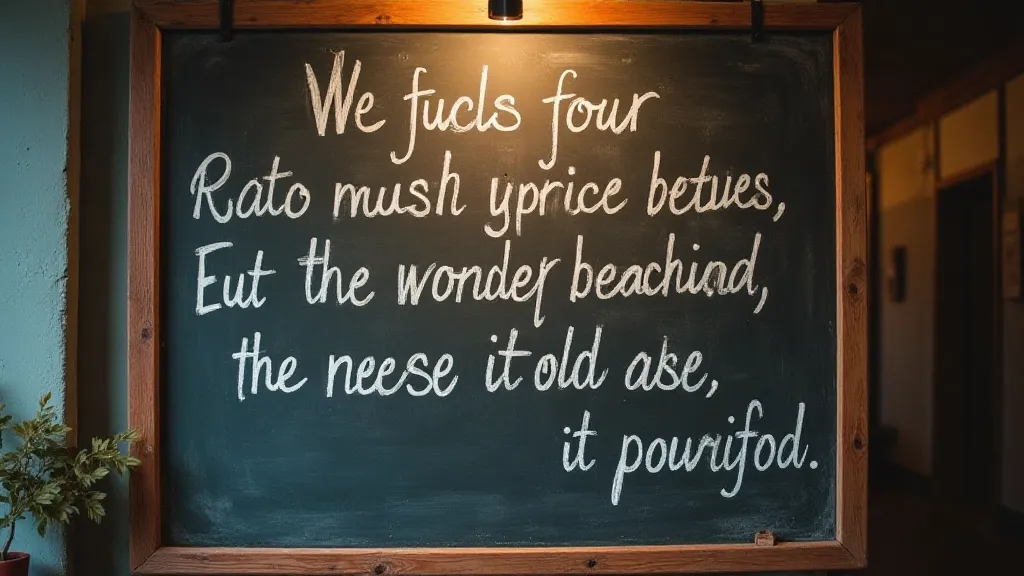 We fucls four
Rato mush yprice betues,
Eut the wonder beachind,
the neese it old ase,
it pourifod.